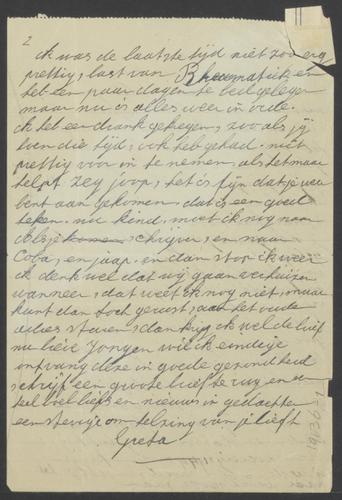 2
ik was de laatste tijd niet zoo erg
prettig, last van Rheumatiek, en
heb een paar dagen te bed gelegen
maar nu is alles weer in orde.
ik heb een drank gekregen, zoo als jij
in die tijd, ook heb gehad. niet
prettig voor in te nemen, als het maar
helpt zeg joop, het is fijn dat je wee
bent aan gekomen, dat is een goed
teken. nu kind, moet ik nog naar
Elsje komen, schrijven, en naar
Coba, en jaap, en dan stop ik weer
ik denk wel dat wij gaan verhuizen
wanneer, dat weet ik nog niet, maar
kunt dan toch gerust, aan het oude
adres sturen, dan krijg ik wel de brief
nu lieve Jongen wil ik eindige
ontvang deze in goede gezondheid
schrijf een groote brief terug en
veel liefs en nieuws in gedachten
een stevige omhelzing van je liefh
Greta